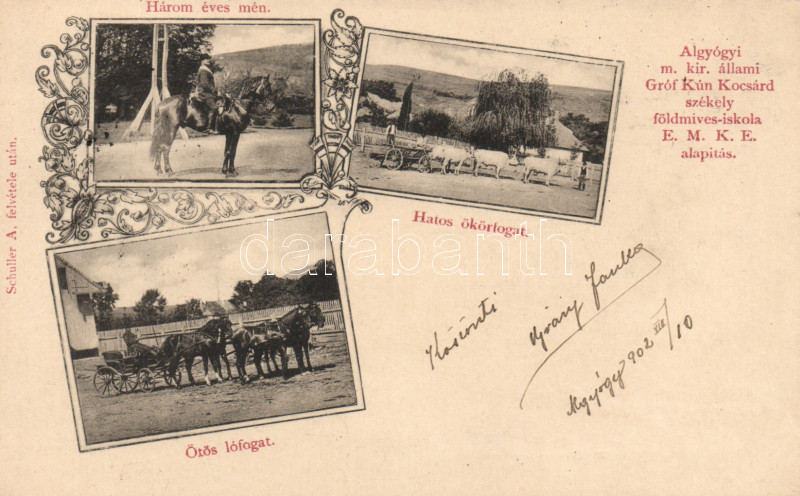 Három éves mén.
Algyógyi
m. kir. állami
Gróf Kún Kocsárd
székely
földmives-iskola
E. M. K. E.
alapitás.
Hatos ökörfogat.
Ötös lófogat.
Schuller A. felvétele után.
darabanth
Köszönti
Algyógy 902 VIII/10